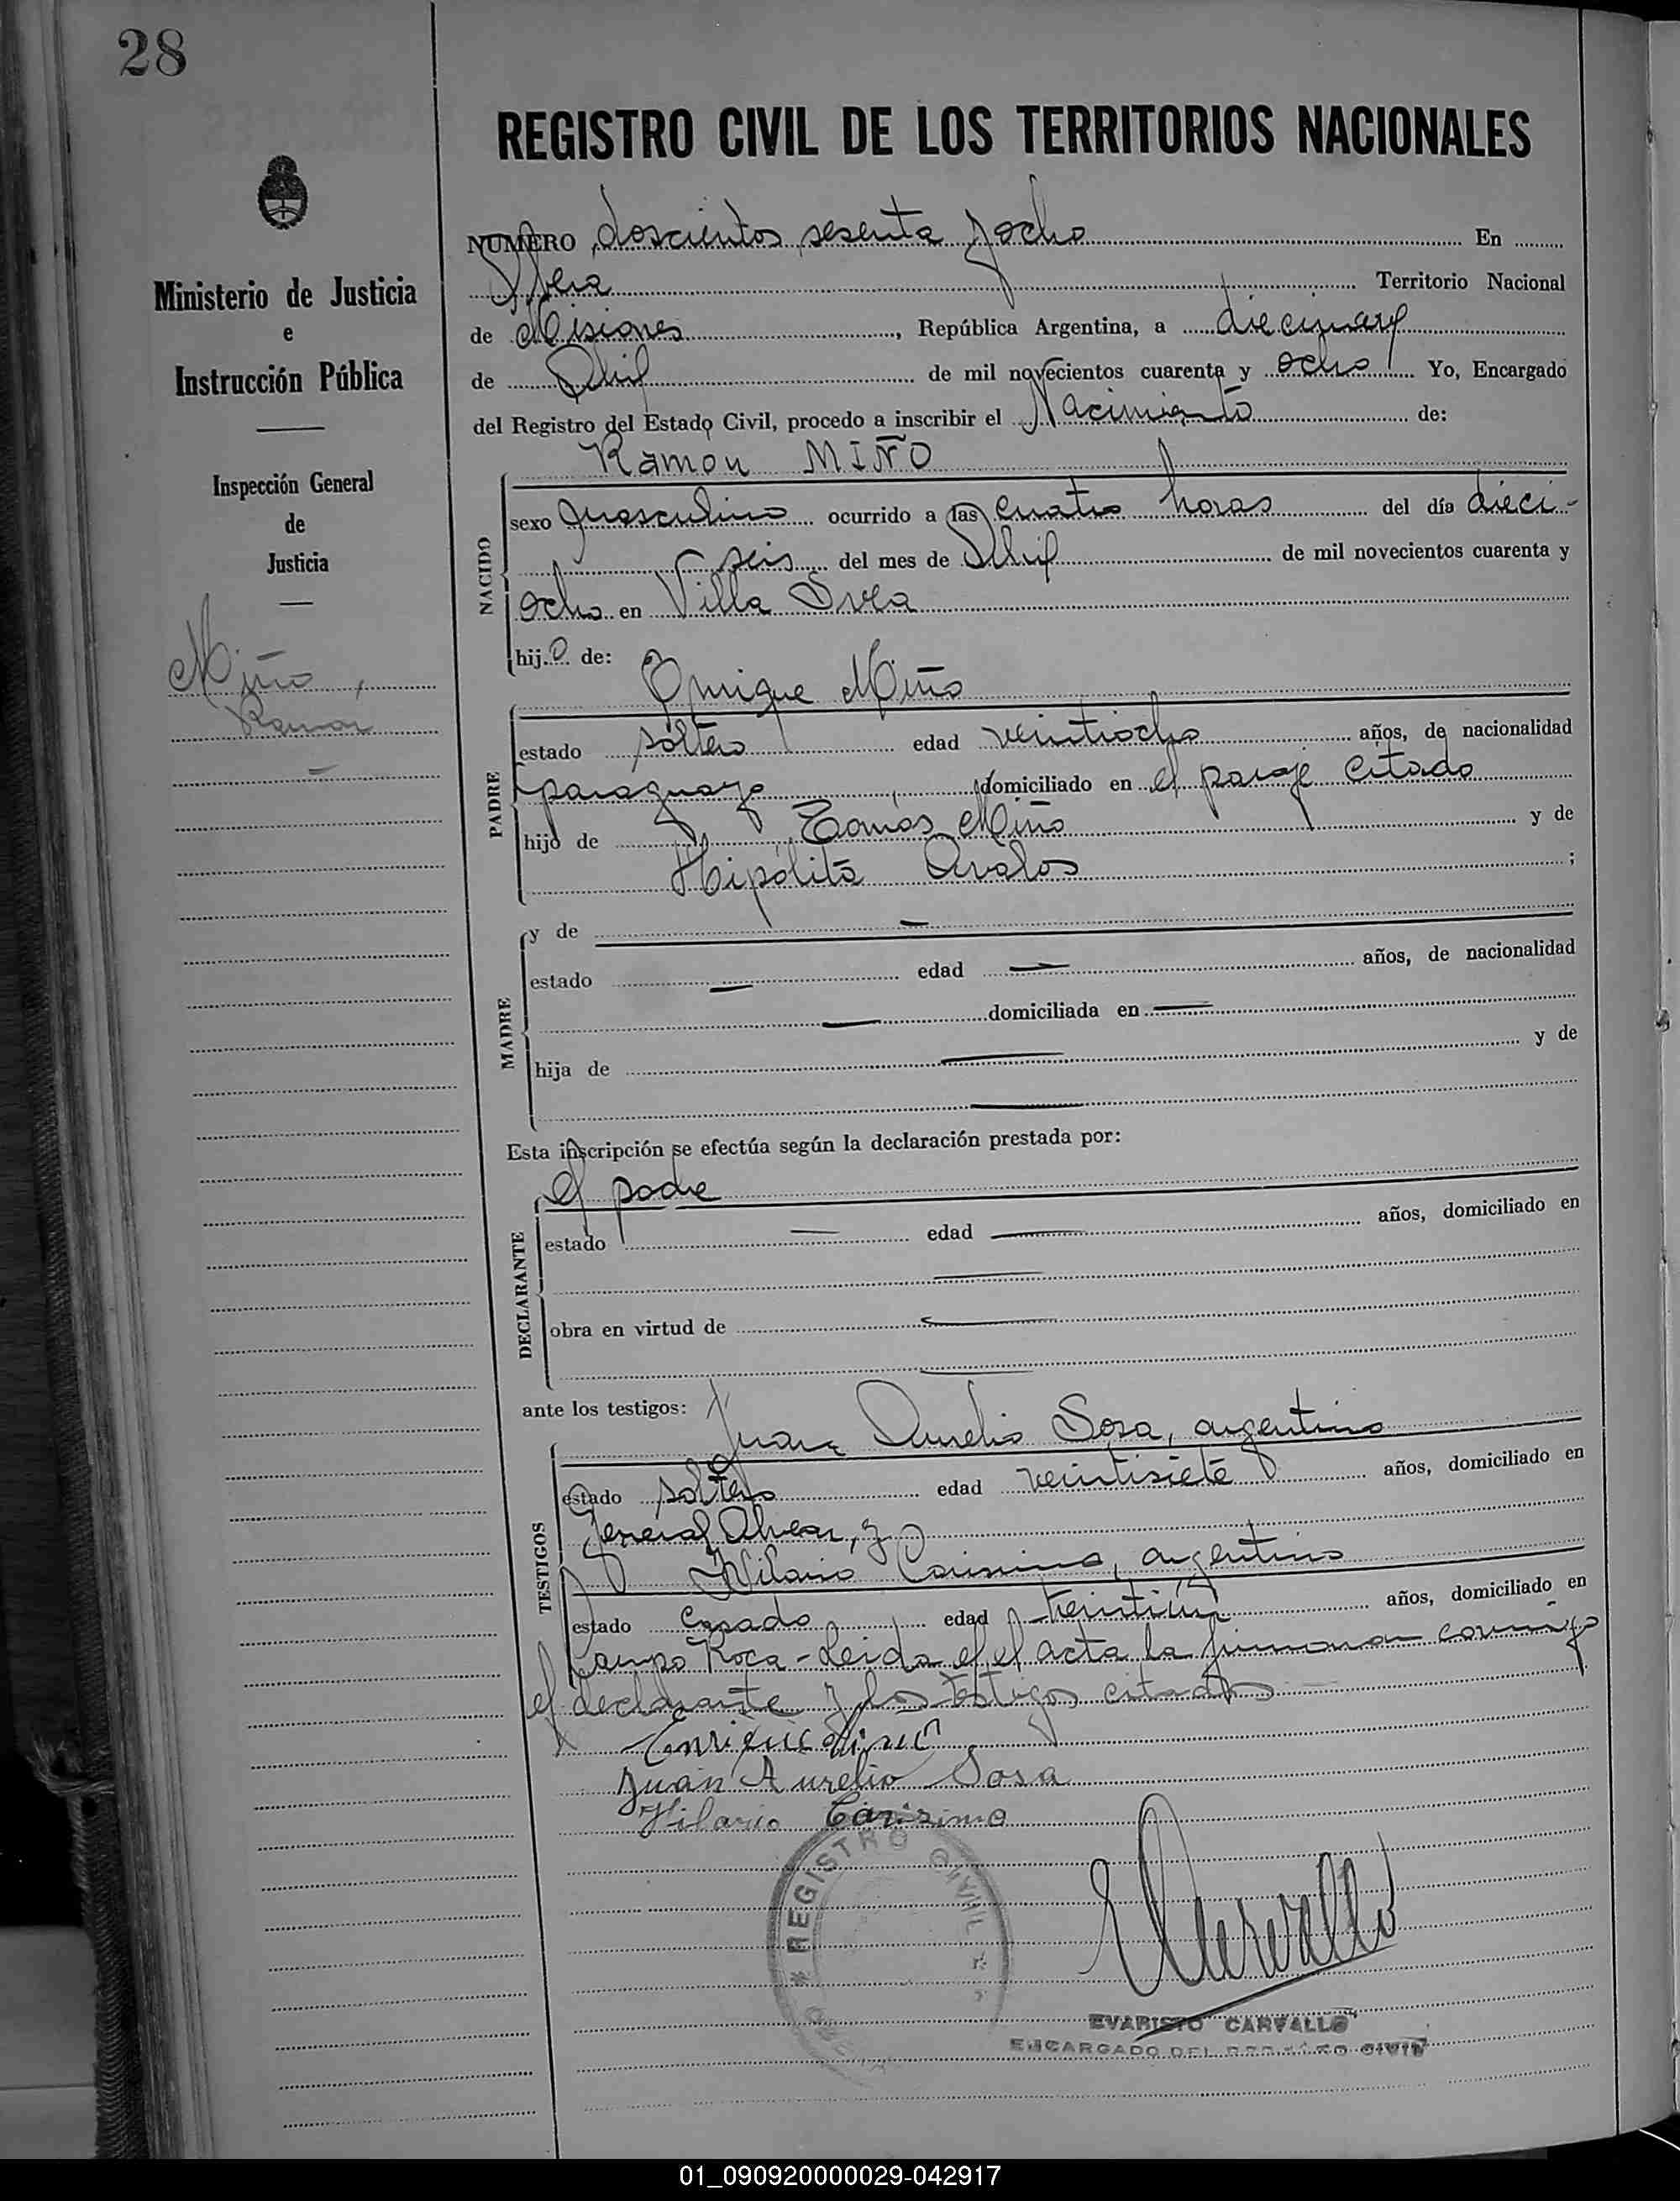 28
REGISTRO CIVIL DE LOS TERRITORIOS NACIONALES
NUMERO doscientos sesenta y ocho En
Territorio Nacional
de Misiones, República Argentina, a diecinueve
de Abril de mil novecientos cuarenta y ocho Yo, Encargado
del Registro del Estado Civil, procedo a inscribir el Nacimiento de:
Ramon MIÑO
NACIDO
sexo masculino ocurrido a las cuatro horas del día dieci-
seis del mes de Abril de mil novecientos cuarenta y
ocho en Villa Svea
hijo de:
Enrique Miño
PADRE
estado soltero edad veintiocho años, de nacionalidad
paraguayo domiciliado en el paraje citado
hijo de Tomás Miño y de
Hipólita Avalos ;
MADRE
y de —
estado — edad — años, de nacionalidad
— domiciliada en —
hija de — y de
—
Esta inscripción se efectúa según la declaración prestada por:
DECLARANTE
el padre
estado — edad — años, domiciliado en
—
obra en virtud de —
—
ante los testigos:
Juan Aurelio Sosa, argentino
TESTIGOS
estado soltero edad veintisiete años, domiciliado en
General Alvear, y
Hilario Carisimo, argentino
estado casado edad años, domiciliado en
Campo Roca - Leida el acta la firman conmigo
el declarante y los testigos citados
Enrique Miño
Juan Aurelio Sosa
Hilario Carisimo
* REGISTRO CIVIL *
EVARISTO CARVALLO
ENCARGADO DEL REGISTRO CIVIL
Ministerio de Justicia
e
Instrucción Pública
Inspección General
de
Justicia
Miño,
Ramon
01_090920000029-042917